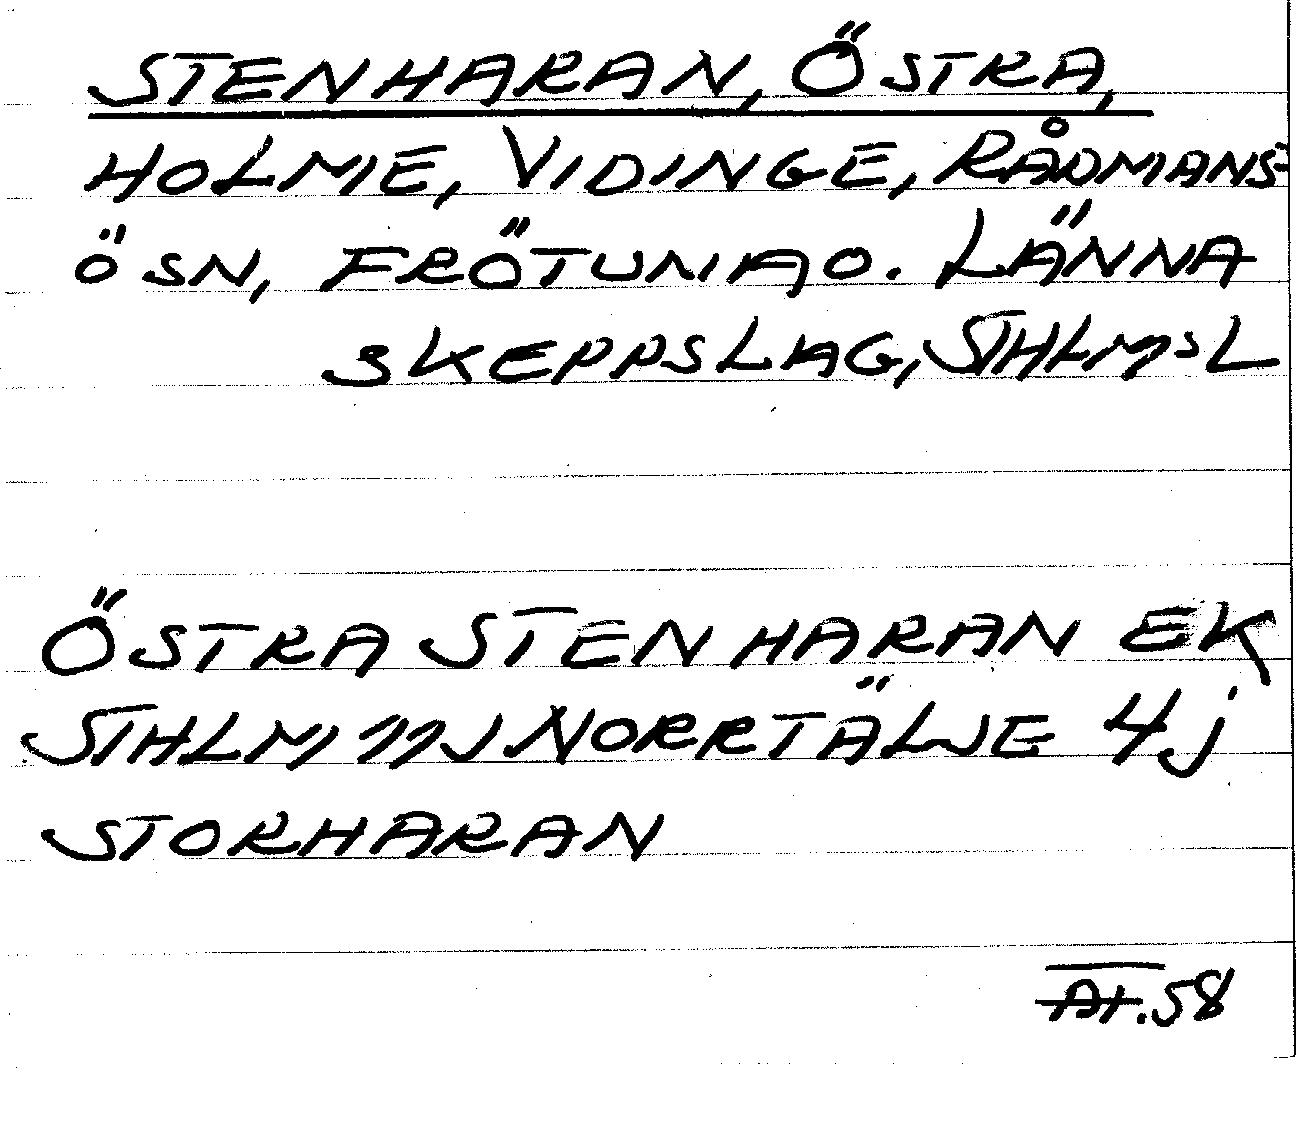 STENHARAN, ÖSTRA,
HOLME, VIDINGE, RÅDMANS-
Ö SN, FRÖTUNA O. LÄNNA
SKEPPSLAG, STHLMS L
ÖSTRA STENHARAN EK
STHLM 11J NORRTÄLJE 4j
STORHARAN
.58